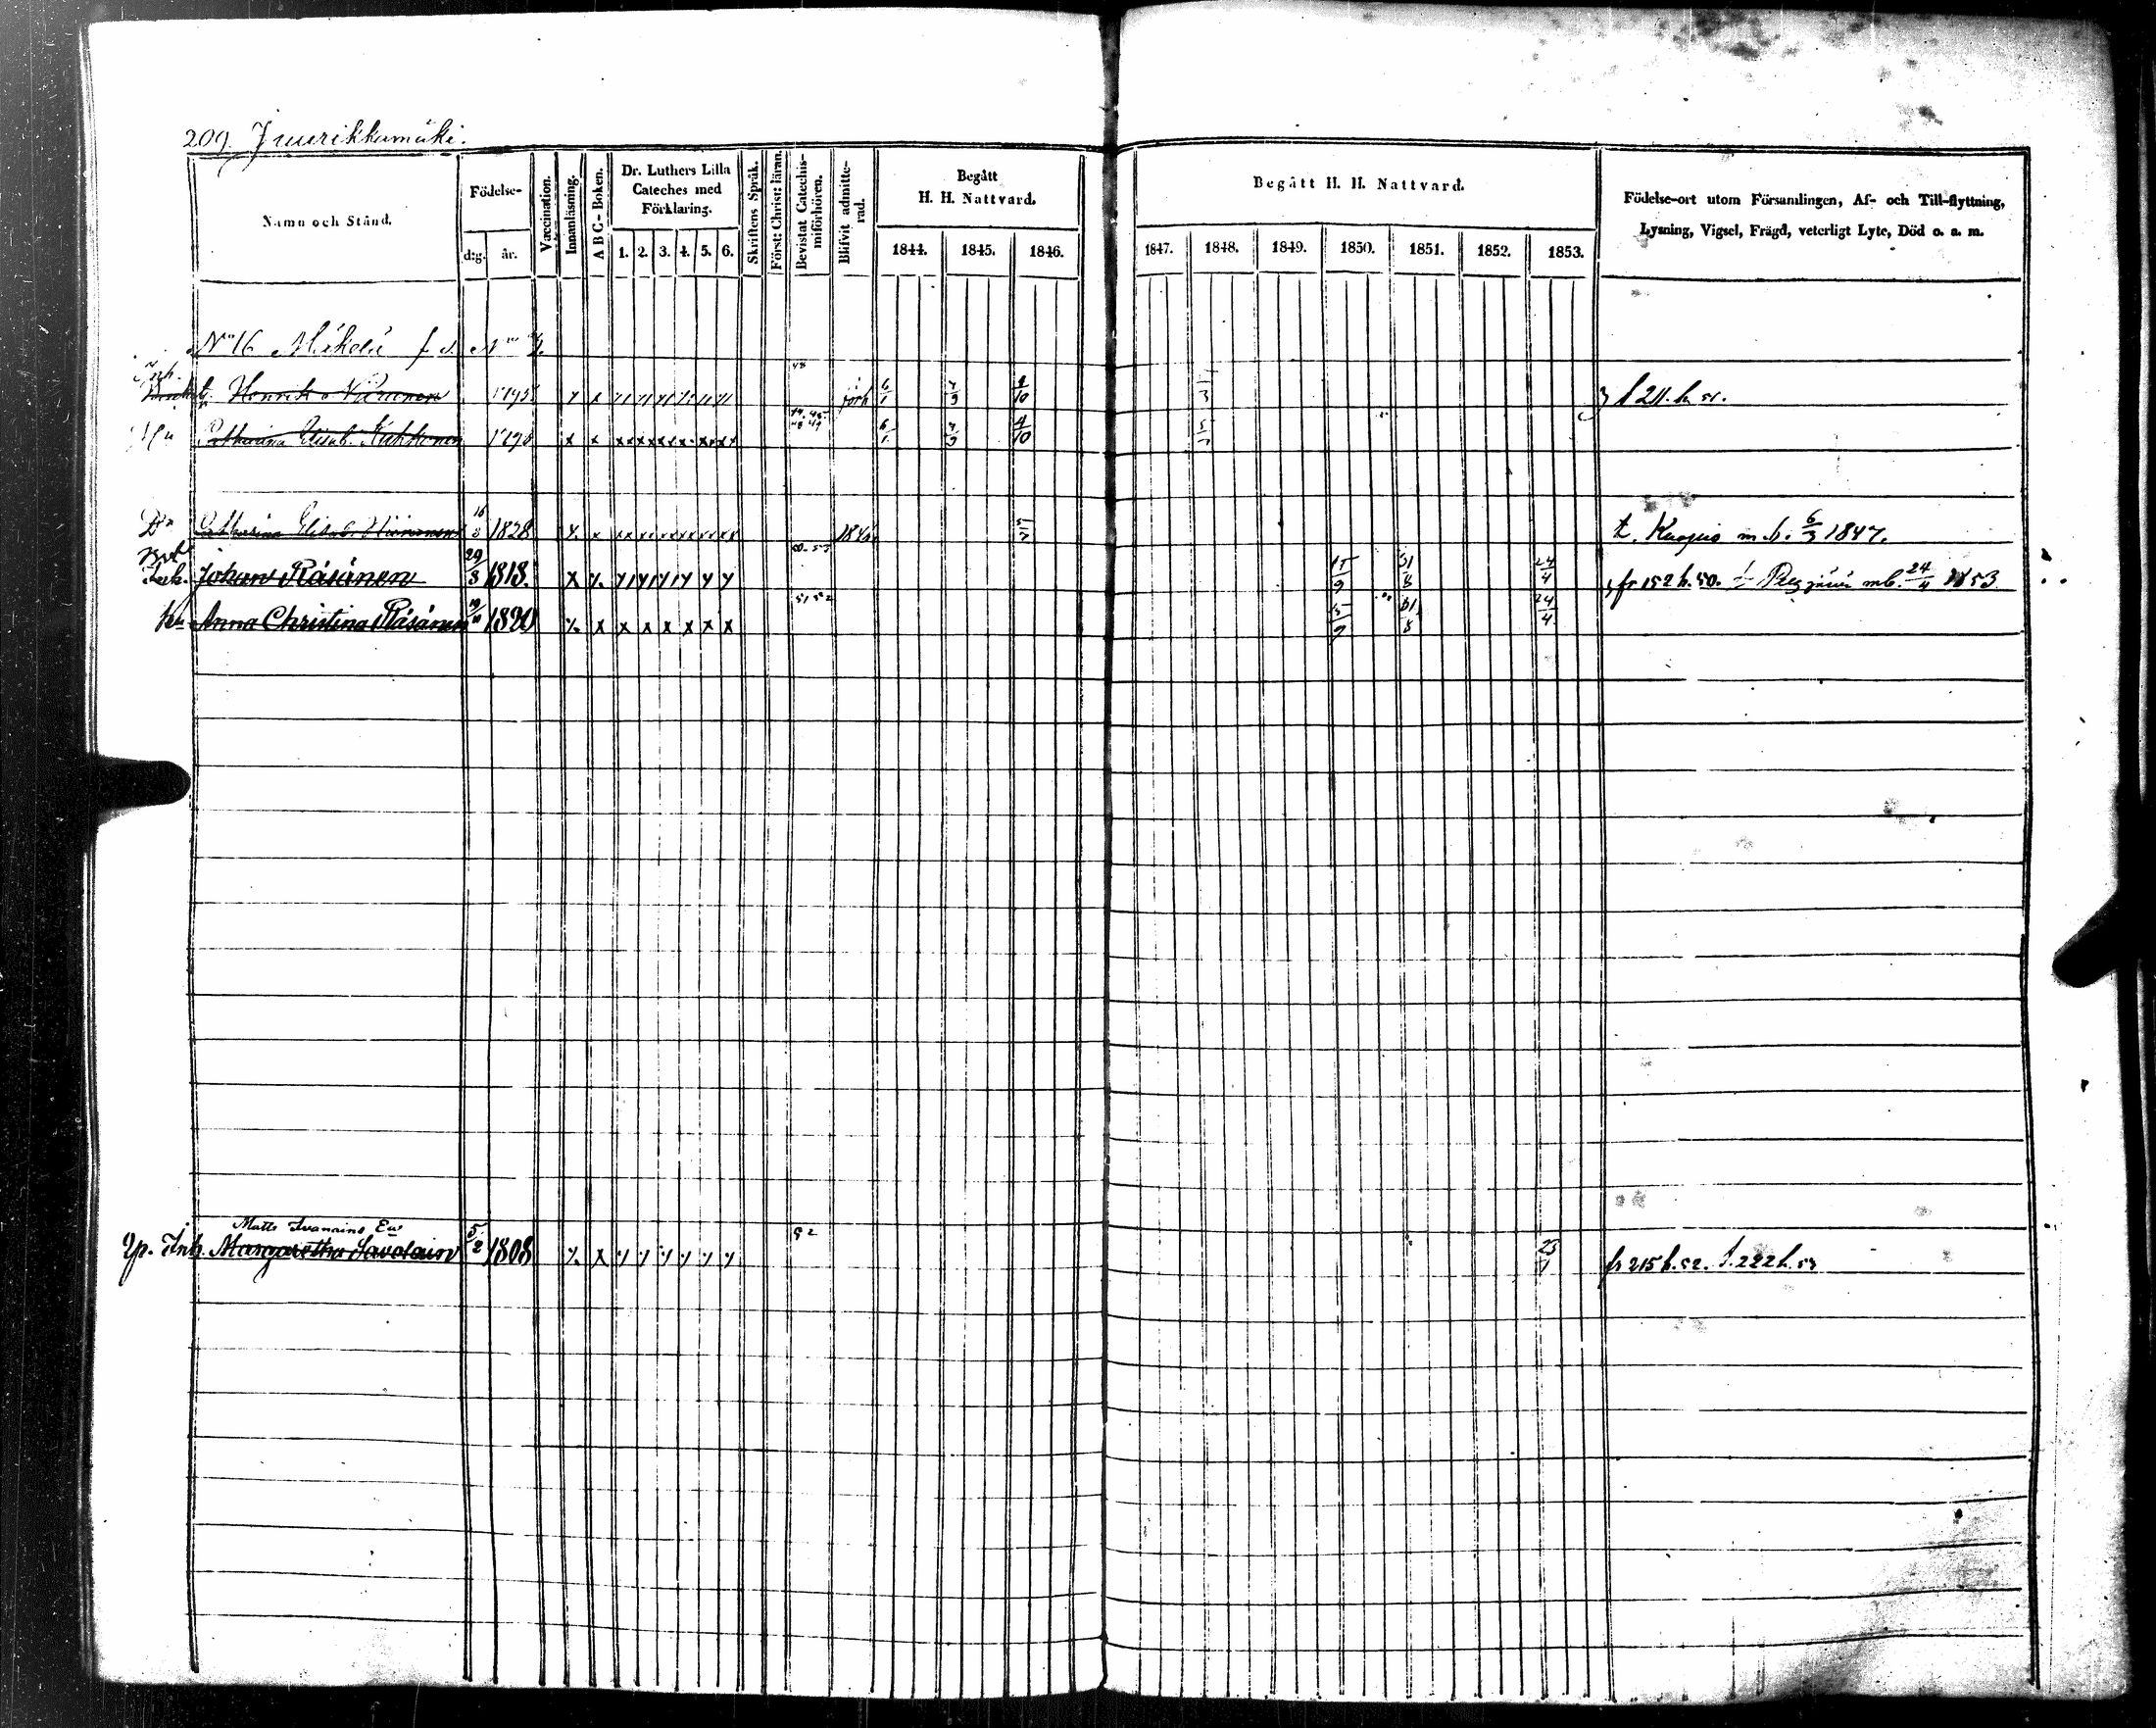 209. Juurikkamäki.
Namn och Stånd.
Födelse-
d:g. år.
Vaccination.
Innanläsning.
A B C-Boken.
Dr. Luthers Lilla
Cateches med
Förklaring.
1. 2. 3. 4. 5. 6.
Skriftens Språk.
Först: Christ: läran.
Bevistat Catechis-
miförhören.
Blifvit admitte-
rad.
Begått
H. H. Nattvard.
1844. 1845. 1846.
Begått H. H. Nattvard.
1847. 1848. 1849. 1850. 1851. 1852. 1853.
Födelse-ort utom Församlingen, Af- och Till-flyttning,
Lysning, Vigsel, Frägd, veterligt Lyte, Död o. a. m.
No 16 Mikelä f. d. No
Inh.
Henrik 1795 x x 48 6/1 4/10
Catharina Elisab. Kukkonen x x xxxxxxxxxxxx 48 49 6/1 4/10
Dr Catharina Elisab. 16/3 1828 x x t. Kuopio m. b. 6/3 1847.
Inh. Johan Räsänen 29/3 1818. x x y y y y y y 50-53 15/9 31/8 24/4 fr 152 h. 50. mb. 24/4 1853
Hu Anna Christina Räsänen 1820 x x x x x x x x 51 52 15/9 31/8 24/4
Matts Ivanains Ew
Yp. Inh. Margaretha Savolain 5/2 1808 x x y y y y y y 52 23/1 fr 215 h. 52. t. 222 h. 53